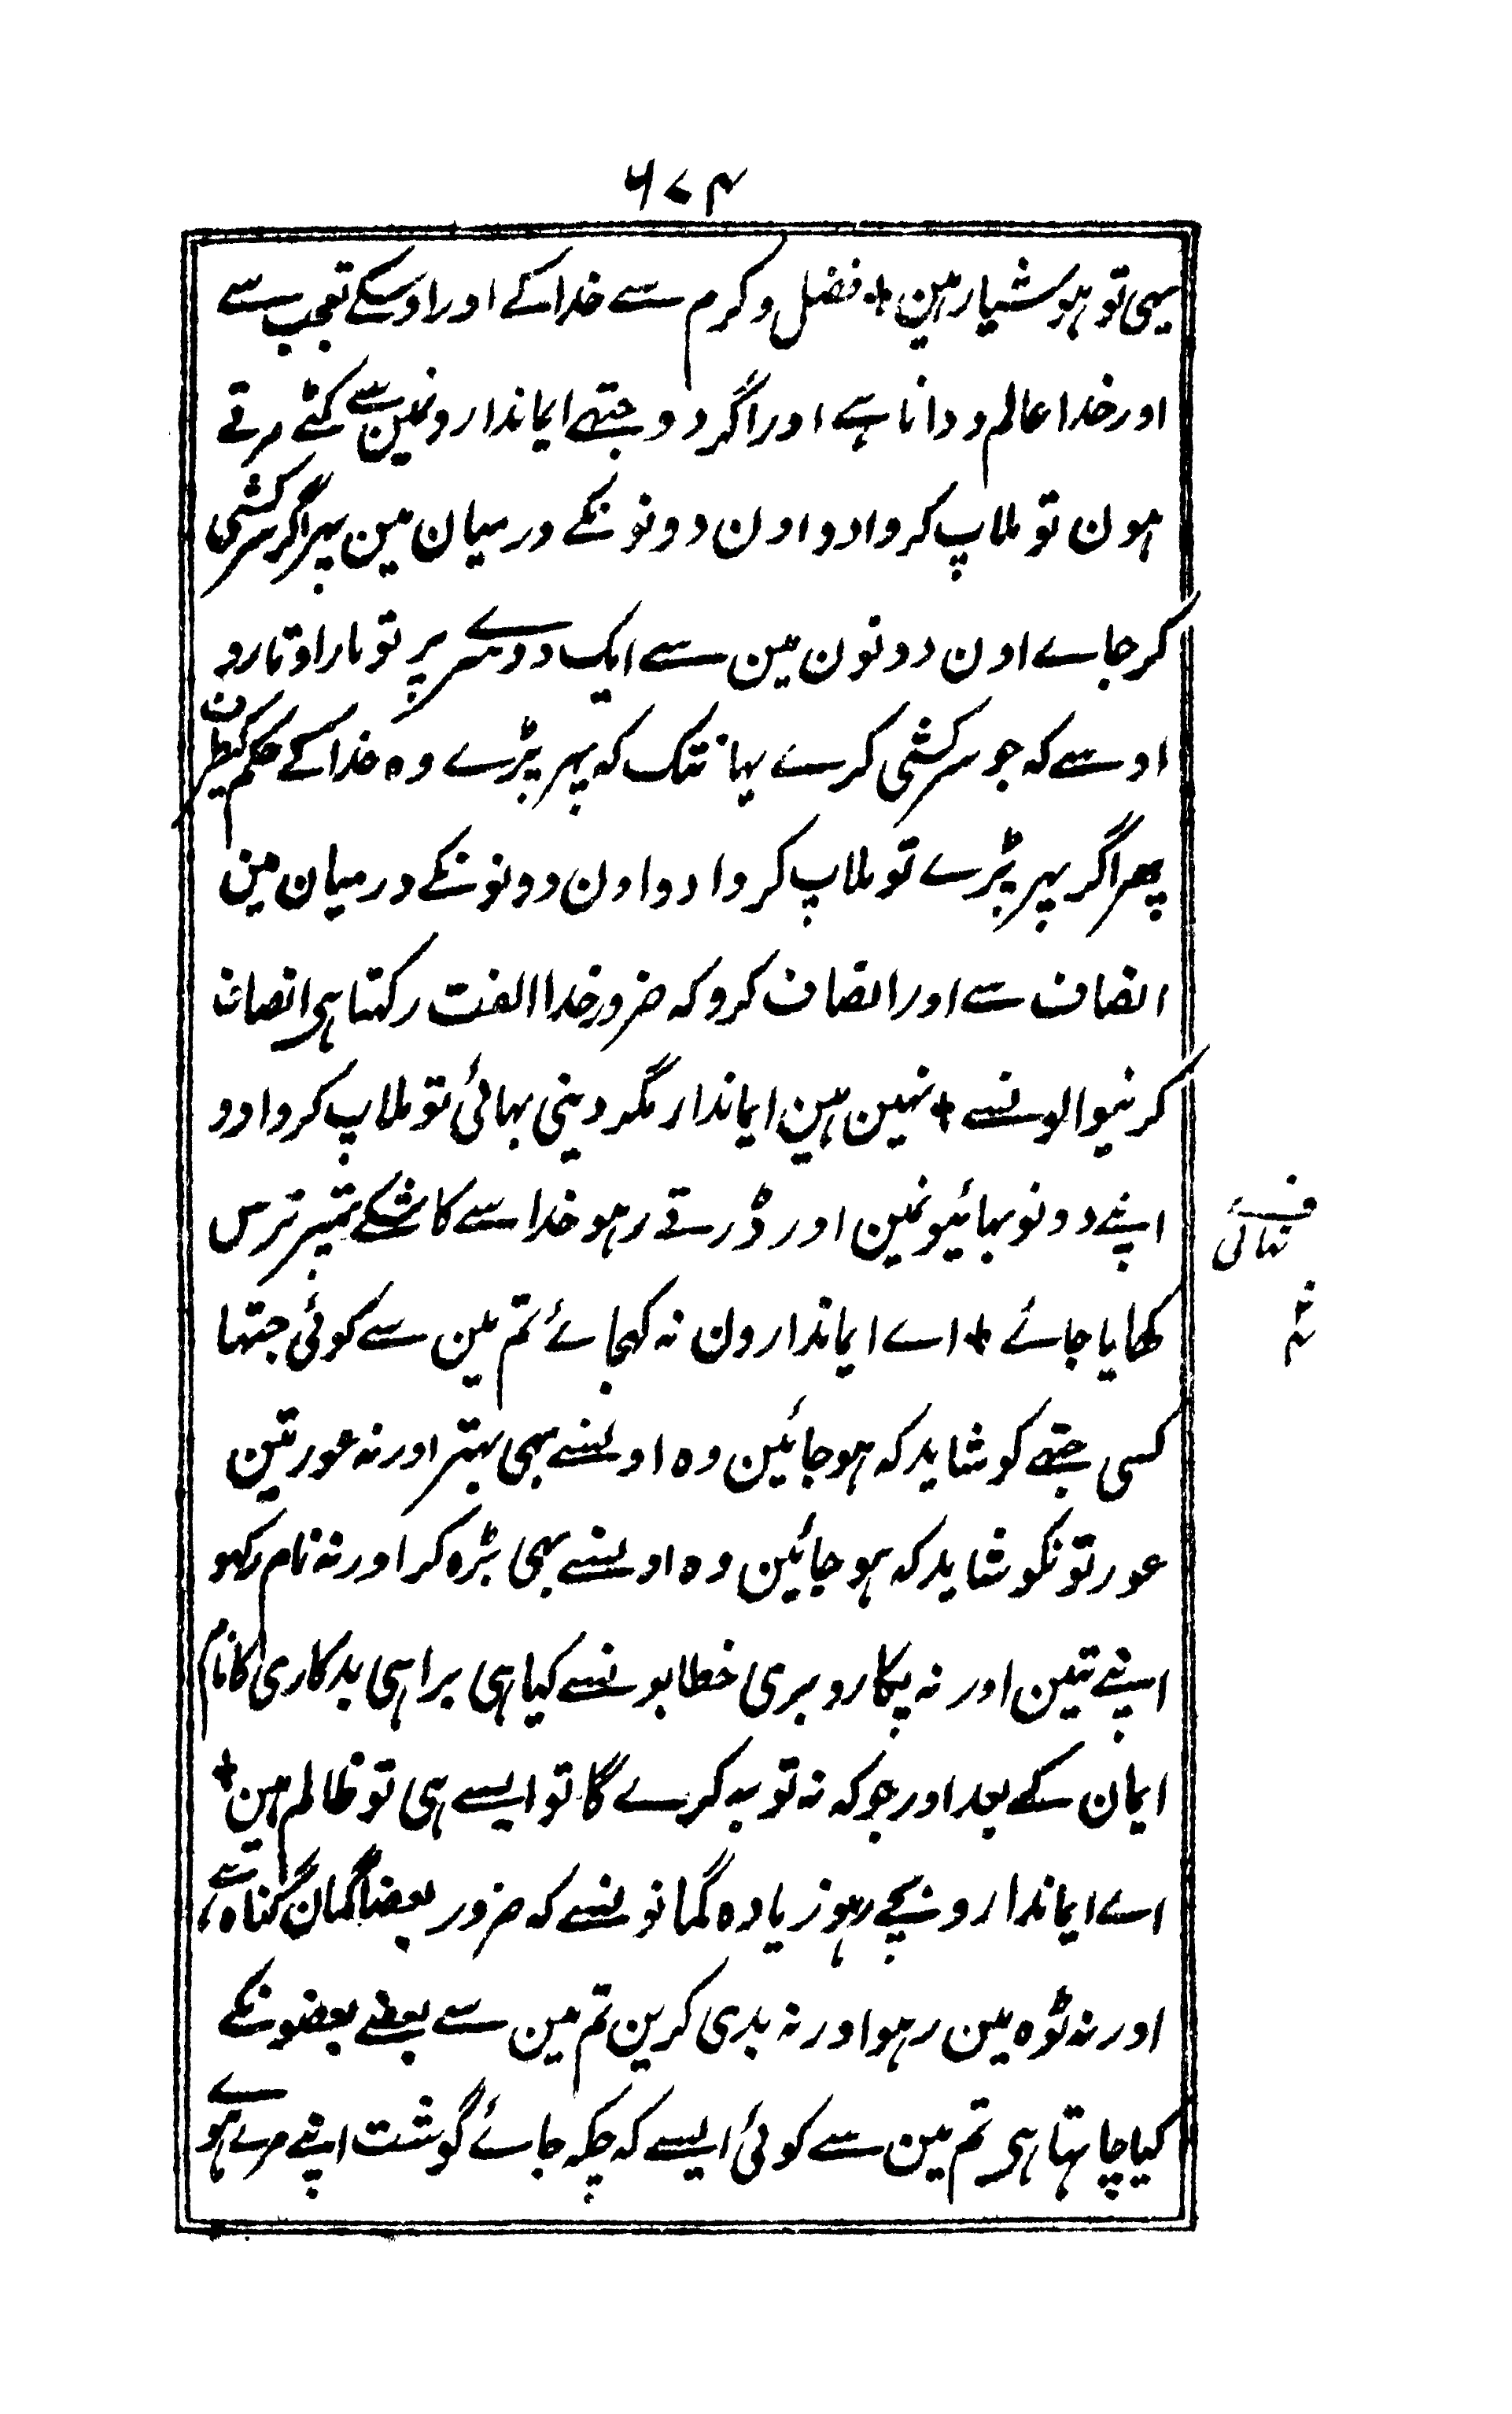 ۶۷۴
یہی تو ہوشیار ہین + فضل و کرم سے خدا کے اور اوسکے تعجب سے
اور خدا عالم و دانا ہے اور اگر دو جتھے ایماندارونمین سے کٹے مرتے
ہون تو ملاپ کروا دو اون دونونکے درمیان مین پہر اگر سرکشی
کر جاے اون دونون مین سے ایک دوسرے پر تو مارا وتارو
اوسے کہ جو سرکشی کرے یہانتک کہ پہر پڑے وہ خدا کے حکم کیطرف
پھر اگر پہر پڑے تو ملاپ کروا دو اون دونونکے درمیان مین
انصاف سے اور انصاف کرو کہ ضرور خدا الفت رکہتا ہی انصاف
کرنیوالونسے + نہین ہین ایماندار مگر دینی بہائی تو ملاپ کروا دو
اپنے دونو بہائیونمین اور ڈرتے رہو خدا سے کاشکے تمپر ترس
کھایا جائے + اے ایماندارون نہ کہجائے تم مین سے کوئی جتہا
کسی جتھے کو شاید کہ ہو جائین وہ اونسے بہی بہتر اور نہ عورتین
عورتونکو شاید کہ ہو جائین وہ اونسے بہی بڑہ کر اور نہ نام رکہو
اپنے تیئن اور نہ پکارو بری خطابونسے کیا ہی برا ہی بدکاری کا نام
ایمان کے بعد اور جو کہ نہ توبہ کرے گا تو ایسے ہی تو ظالم ہین +
اے ایماندارو بچے رہو زیادہ گمانونسے کہ ضرور بعضا گمان گناہ ہے
اور نہ ٹوہ مین رہو اور نہ بدی کرین تم مین سے بعضے بعضونکے
کیا چاہتا ہی تم مین سے کوئی ایسے کہ چکہ جائے گوشت اپنے مرے ہوے